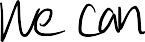 we can